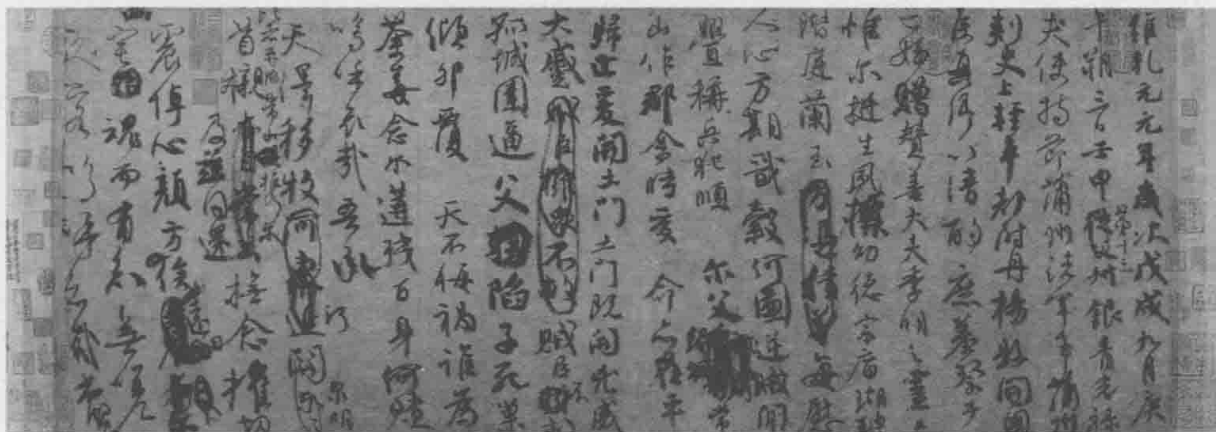 維乾元元年歲次戊戌九月庚
午朔三日壬申第十三叔銀青光祿
夫使持節蒲州諸軍事蒲州
刺史上輕車都尉丹楊縣開國
侯真卿以清酌庶羞祭于
亡姪贈贊善大夫季明之靈曰
惟爾挺生夙標幼德宗廟瑚璉
階庭蘭玉每慰
人心方期戩穀何圖逆賊閒
釁稱兵犯順爾父常
山作郡余時受命亦在平
歸止爰開土門土門既開凶威
大蹙賊臣不救
孤城圍逼父陷子死巢
傾卵覆天不悔禍誰為
荼毒念爾遘殘百身何贖
嗚呼哀哉吾承
天澤移牧河關泉明
首櫬及茲同還撫念摧切
震悼心顏方俟遠日
宅魂而有知無嗟久
客嗚呼哀哉尚饗